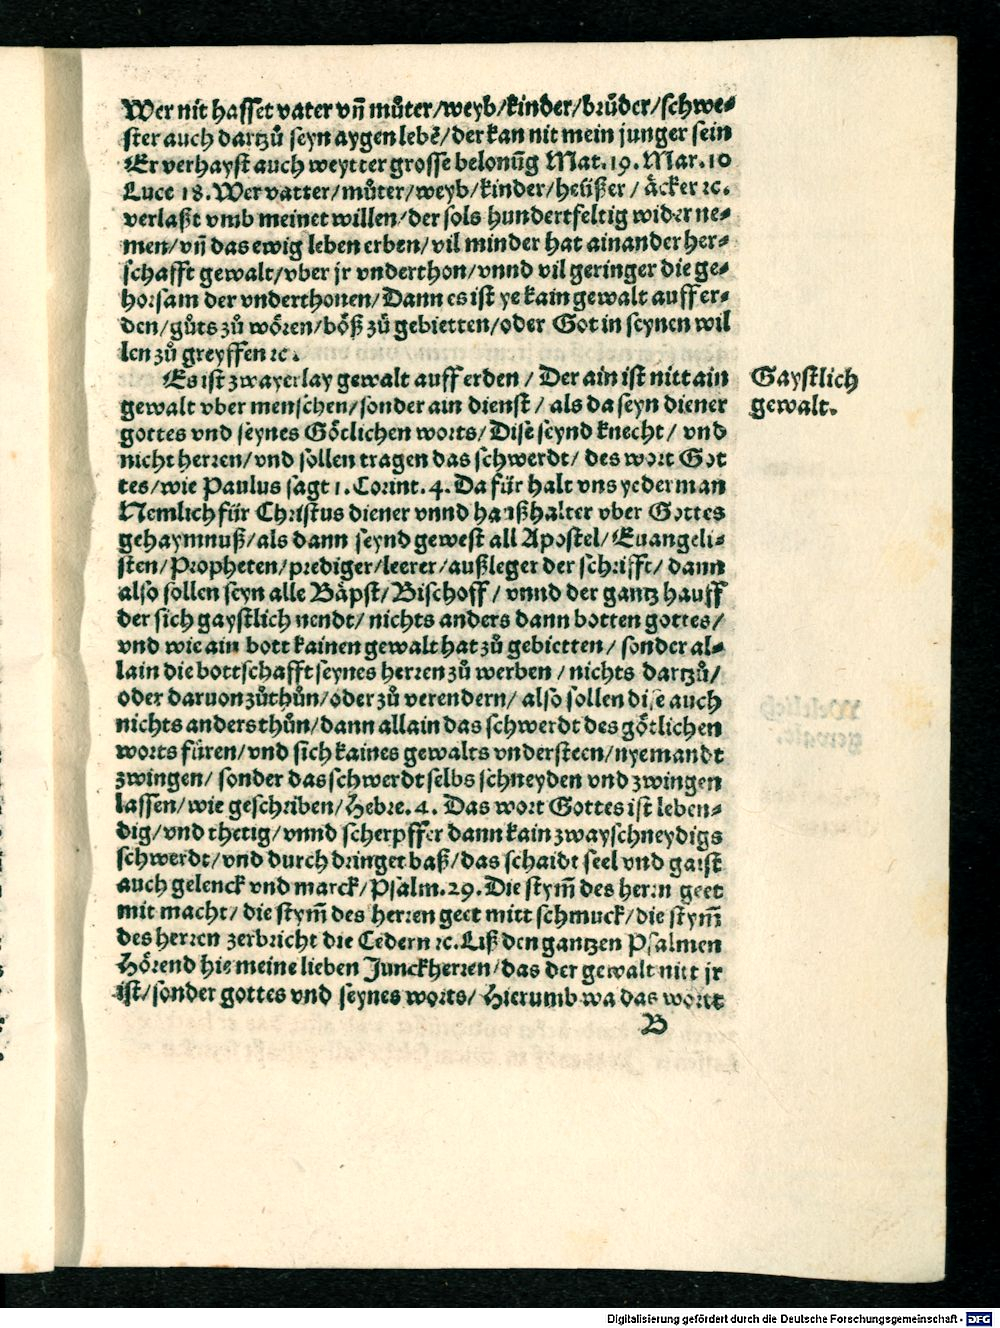 Wer nit hasset vater vnd̄ můter/weyb/kinder/brůder/schwe-
ster auch dartzů seyn aygen lebē/der kan nit mein junger sein
Er verhayst auch weytter grosse belonūg Mat. 19. Mar. 10
Luce 18. Wer vatter/můter/weyb/kinder/heüßer/äcker ꝛc.
verlaßt vmb meinet willen/der sols hundertfeltig wider ne-
men/vñ das ewig leben erben/vil minder hat ainander her-
schafft gewalt/vber jr vnderthon/vnnd vil geringer die ge-
horsam der vnderthonen/Dann es ist ye kain gewalt auff er-
den/gůts zů wören/böß zů gebietten/oder Got in seynen wil
len zů greyffen ꝛc.
Es ist zwayerlay gewalt auff erden/Der ain ist nitt ain
Gaystlich
gewalt vber menschen/sonder ain dienst/als da seyn diener
gewalt.
gottes vnd seynes Götlichen worts/Dise seynd knecht/vnd
nicht herren/vnd sollen tragen das schwerdt/des wort Got
tes/wie Paulus sagt 1. Corint. 4. Da für halt vns yederman
Nemlich für Christus diener vnnd haußhalter vber Gottes
gehaymnuß/als dann seynd gewest all Apostel/Euangeli-
sten/Propheten/prediger/leerer/außleger der schrifft/dann
also sollen seyn alle Bäpst/Bischoff/vnnd der gantz hauff
der sich gaystlich nendt/nichts anders dann botten gottes/
vnd wie ain bott kainen gewalt hat zů gebietten/sonder al-
lain die bottschafft seynes herren zů werben/nichts dartzů/
oder daruon zůthůn/oder zů verendern/also sollen dise auch
nichts anders thůn/dann allain das schwerdt des götlichen
worts füren/vnd sich kaines gewalts vndersteen/nyemandt
zwingen/sonder das schwerdt selbs schneyden vnd zwingen
lassen/wie geschriben/Hebre. 4. Das wort Gottes ist leben-
dig/vnd thetig/vnnd scherpffer dann kain zwayschneydigs
schwerdt/vnd durch dringet baß/das schaidt seel vnd gaist
auch gelenck vnd marck/Psalm. 29. Die stym̄ des herrn geet
mit macht/die stym̄ des herren geet mitt schmuck/die stym̄
des herren zerbricht die Cedern ꝛc. Liß den gantzen Psalmen
Hörend hie meine lieben Junckherren/das der gewalt nitt jr
ist/sonder gottes vnd seynes worts/Hierumb wa das wortt
B
Digitalisierung gefördert durch die Deutsche Forschungsgemeinschaft - DFG